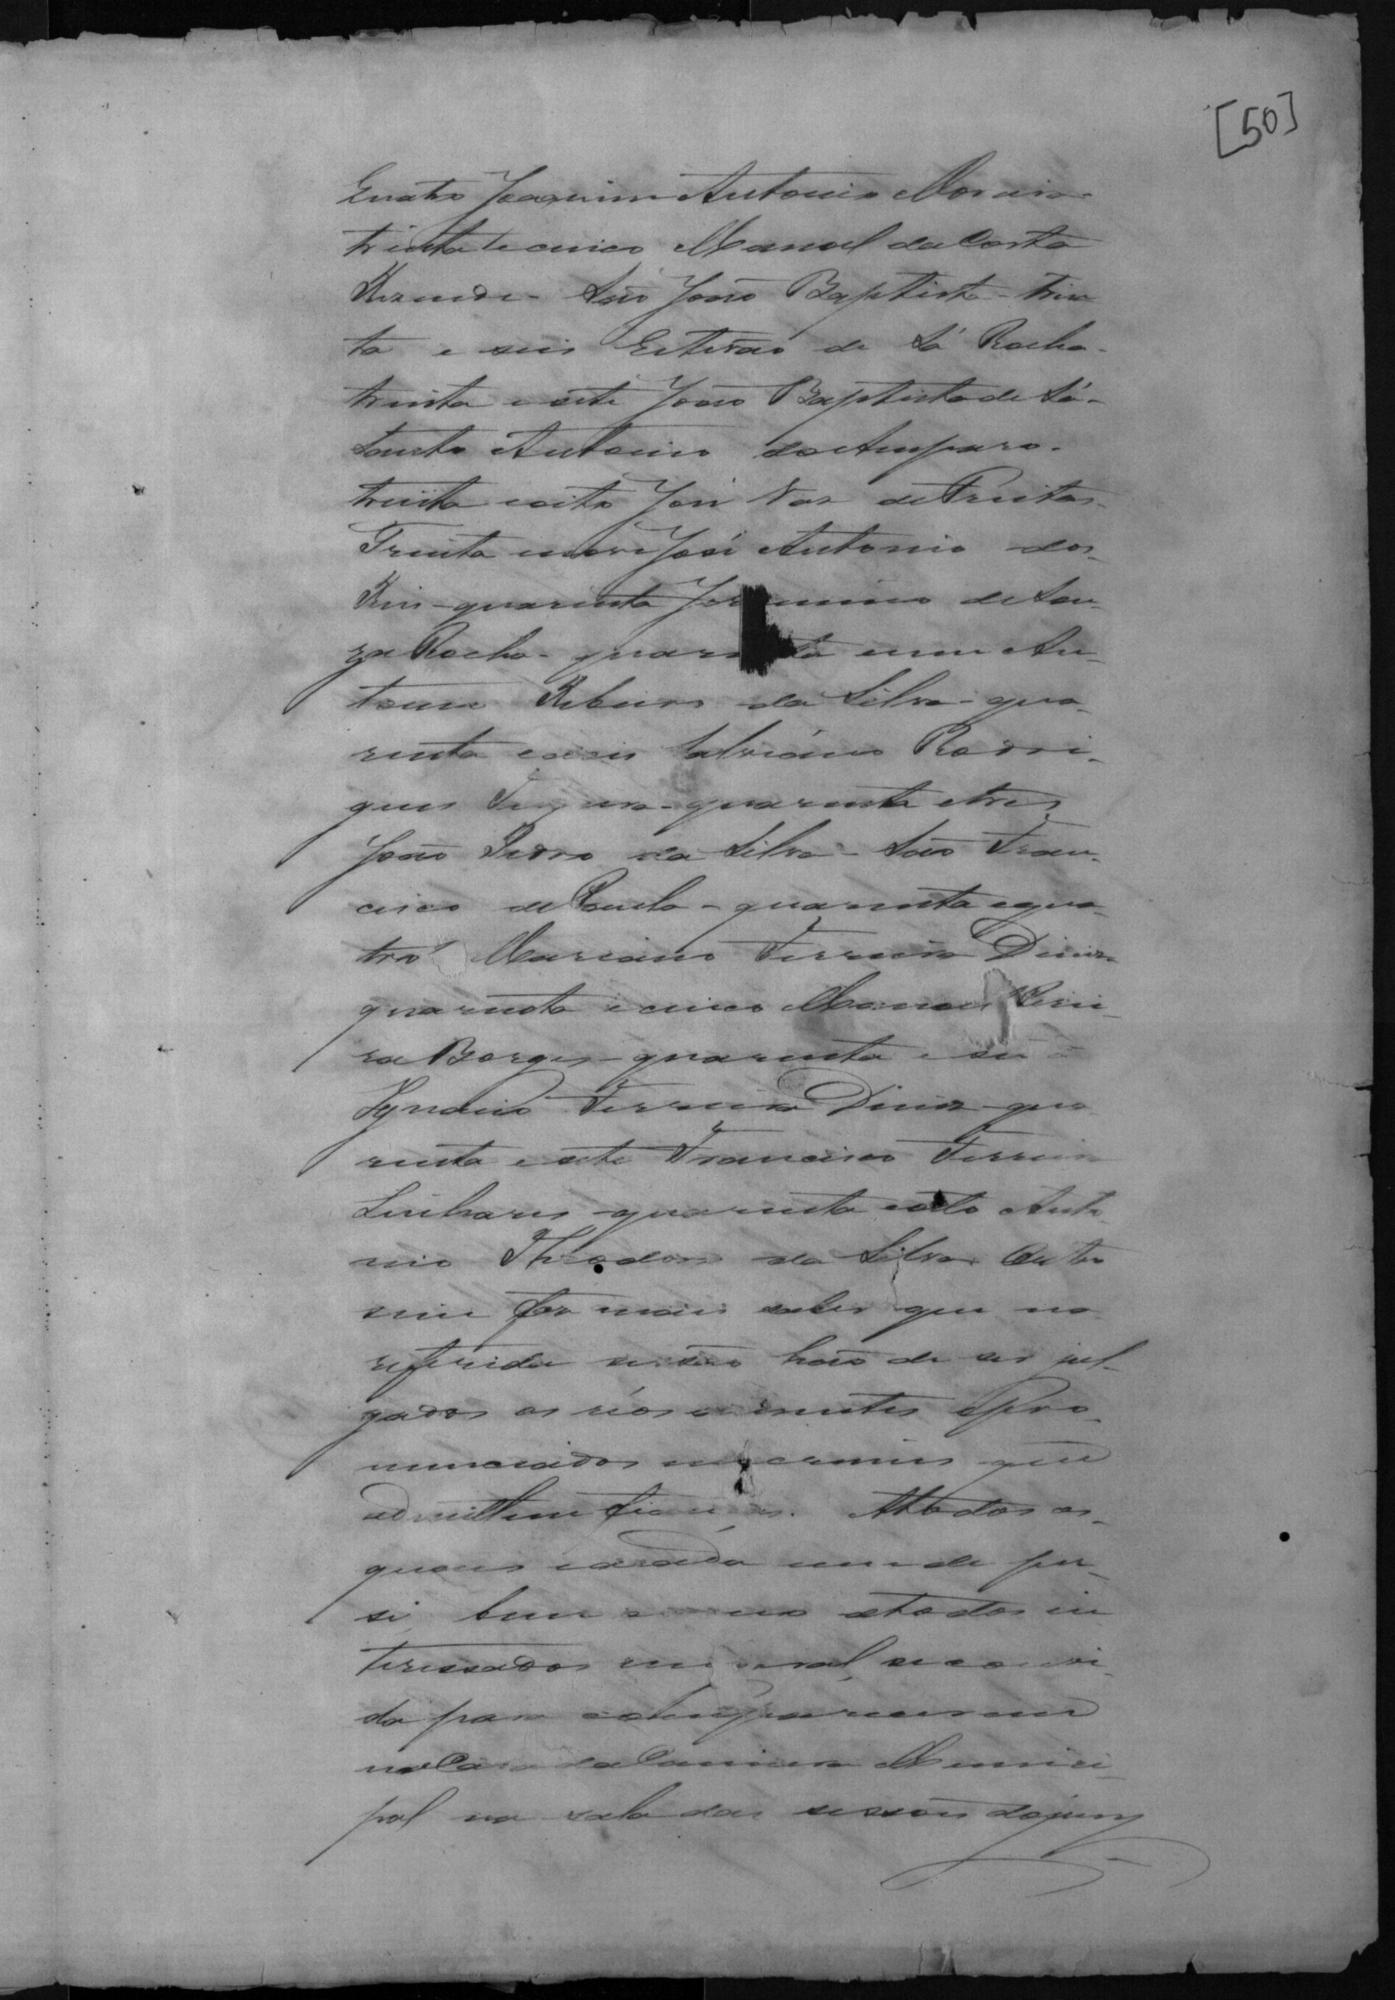 [50]
Quatro Joaquim Antonio Moreira
trinta e cinco Manoel da Costa
Rezende - São João Baptista - trin
ta e seis Estevão de Sá Rocha -
trinta e sete João Baptista de Sá -
Santo Antonio do Amparo -
trinta e oito José Vaz de Freitas
Trinta e nove José Antonio dos
Reis - quarenta de Sou
za Rocha - quarenta e um An
tonio Ribeiro da Silva - qua
renta e dois Rodri
gues - quarenta e tres
João Pedro da Silva - São Fran
cisco de Paula - quarenta e qua
tro Marciano Ferreira Diniz
quarenta e cinco Manoel Perei
ra Borges - quarenta e seis
Ignacio Ferreira Diniz - qua
renta e sete Francisco Ferreira
Linhares - quarenta e oito Anto
nio Theodoro da Silva Outro
sim faz mais saber que na
referida sessão hão de ser jul
gados os réos ausentes e pro
nunciados em crimes que
admittem fiança. A todos os
quaes e a cada um de per
si, bem como a todos in
teressados em geral, se convi
da para comparecerem
na Casa da Camara Munici
pal na sala das sessões do jury